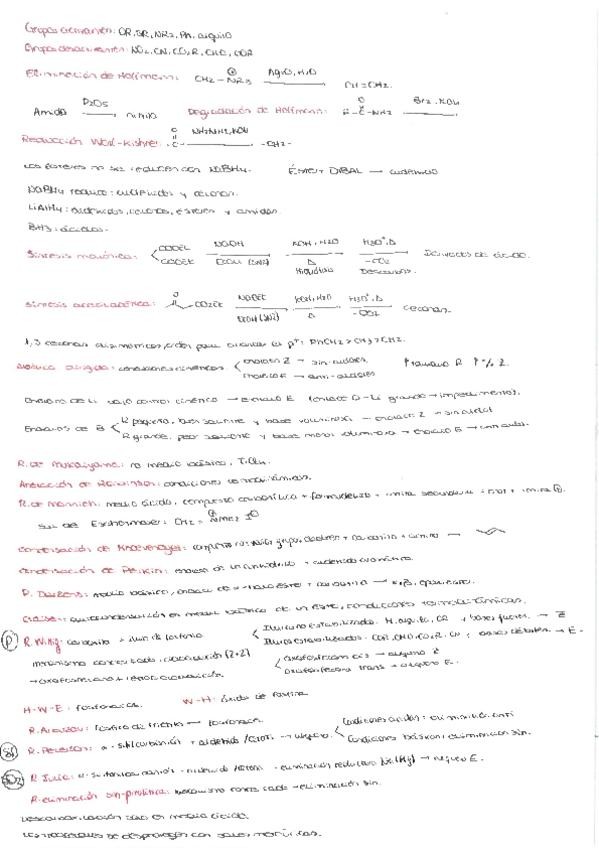 Grupos activantes: OR, SR, NR₂, Ph, alquilo
Grupos desactivantes: NO₂, CN, CO₂R, CHO, COR
Eliminación de Hoffmann: CH₂ - NR₃ ⊕ Ag₂O, H₂O CH=CH₂
Amida P₂O₅ nitrilo Degradación de Hoffmann: R-C-NH₂ O Br₂, KOH
Reducción Wolf-Kishner: C O NH₂NH₂, KOH -CH₂-
Los ésteres no se reducen con NaBH₄. Éster + DIBAL → aldehido
NaBH₄ reduce: aldehidos y cetonas.
LiAlH₄: aldehidos, cetonas, ésteres y amidas.
BH₃: ácidos.
Síntesis malónica: COOEt COOEt NaOH EtOH (SN2) KOH, H₂O Δ Hidrólisis H₃O⁺, Δ -CO₂ Descarbox. Derivados de ácido.
Síntesis acetilacética: O CO₂Et NaOEt EtOH (SN2) KOH, H₂O Δ H₃O⁺, Δ -CO₂ cetonas.
1,3 cetonas asimétricas, orden para arrancar el p⁺: PhCH₂ > CH₃ > CH₂.
Aldólica dirigida: condiciones cinéticas enolato Z → sin-aldoles. enolato E → anti-aldoles ↑ tamaño R ↑ % Z.
Enolato de Li bajo control cinético → enolato E (enlace O-Li grande → impedimento).
Enolatos de B R pequeño, buen saliente y base voluminosa → enolato Z → sin aldol
R grande, peor saliente y base menos voluminosa → enolato E → anti aldol.
R. de Mukaiyama: no medio básico, TiCl₄.
Anelación de Robinson: condiciones termodinámicas.
R. de Mannich: medio ácido, compuesto carbonílico + formaldehido + amina secundaria
Sal de Eschenmoser: CH₂ = NMe₂ ⊕ I⊖
Condensación de Knoevenagel: + carbonilo + amina →
Condensación de Perkin: + aldehido aromático.
R. Darzens: medio básico, + carbonilo →
Claisen: autocondensación en medio básico de un éster, condiciones termodinámicas.
(P) R. Wittig: carbonilo + iluro de fósforo Iluros estabilizados: H, alquilo, OR y bases fuertes. → Z
Iluros estabilizados: COR, CHO, CO₂R, CN y bases débiles. → E.
mecanismo concertado, cicloadición [2+2] Oxafosfetano cis → alqueno Z
→ oxafosfetano + retrocicloadición Oxafosfetano trans → alqueno E.
H-W-E: fosfonatos. W-H: óxido de fosfina
R. Arbuzov: → fosfonato.
(Si) R. Peterson: α-sililcarbanión + aldehido/cetona → alqueno Condiciones ácidas: eliminación anti
Condiciones básicas: eliminación sin.
(SO₂) R. Julia: → eliminación reductora [Na(Hg)] → alqueno E.
R. eliminación sin-pirolítica: mecanismo concertado → eliminación sin.
Descarboxilación sólo en medio ácido.